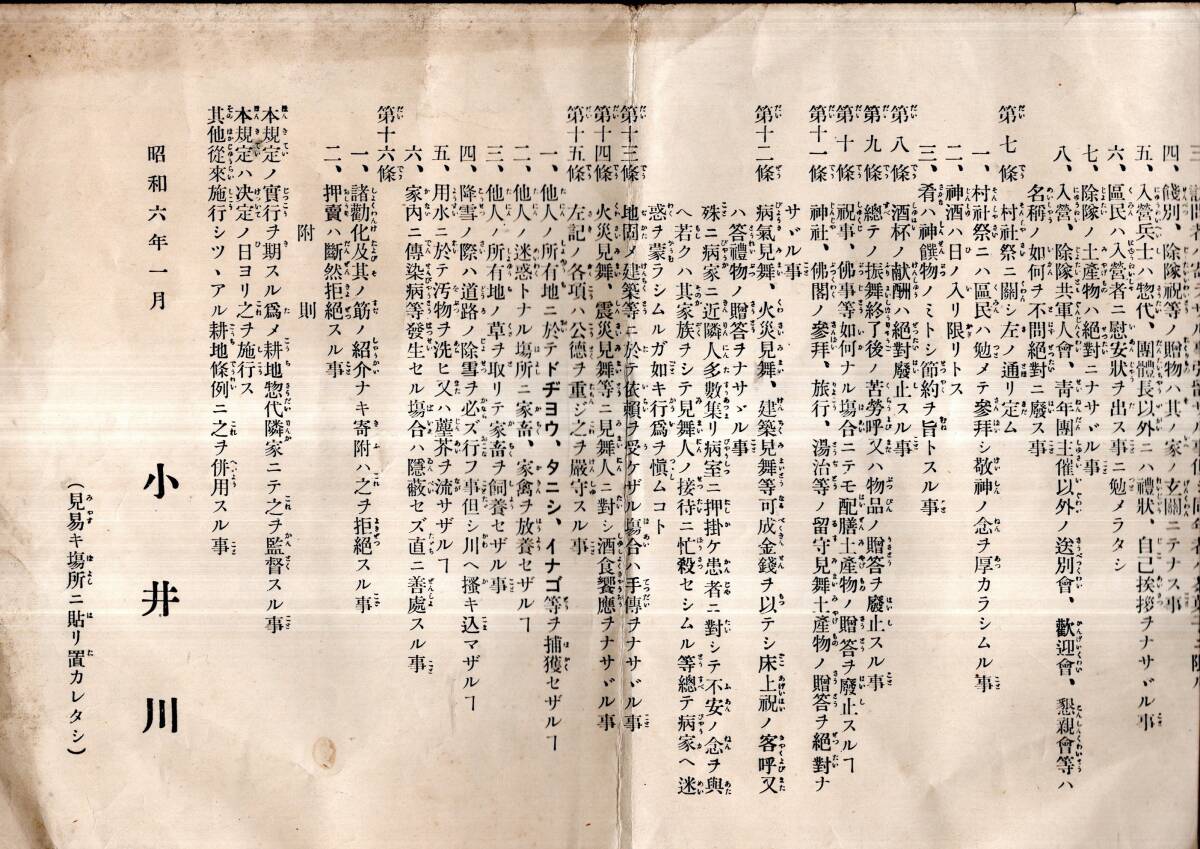 四、餞別、除隊祝等ノ贈物ハ其ノ家ノ玄關ニテナス事
五、入營兵士ハ惣代、團體長以外ニハ禮狀、自己挨拶ヲナサヾル事
六、區民ハ入營者ニ慰安狀ヲ出ス事ニ勉メラタシ
七、除隊ノ土產物ハ絕對ニナサヾル事
八、入營、除隊共軍人會、靑年團主催以外ノ送別會、歡迎會、懇親會等ハ
名稱ノ如何ヲ不問絕對ニ廢ス事
第七條 村社祭ニ關シ左ノ通リ定ム
一、村社祭ニハ區民ハ勉メテ參拜シ敬神ノ念ヲ厚カラシムル事
二、神酒ハ日ノ入リ限リトス
三、肴ハ神饌物ノミトシ節約ヲ旨トスル事
第八條 酒杯ノ獻酬ハ絕對廢止スル事
第九條 總テノ振舞終了後ノ苦勞呼又ハ物品ノ贈答ヲ廢止スル事
第十條 祝事、佛事等如何ナル塲合ニテモ配膳土產物ノ贈答ヲ廢止スルヿ
第十一條 神社、佛閣ノ參拜、旅行、湯治等ノ留守見舞土產物ノ贈答ヲ絕對ナ
サヾル事
第十二條 病氣見舞、火災見舞、建築見舞等可成金錢ヲ以テシ床上祝ノ客呼又
ハ答禮物ノ贈答ヲナサヾル事
殊ニ病家ニ近隣人多數集リ病室ニ押掛ケ患者ニ對シテ不安ノ念ヲ與
ヘ若クハ其家族ヲシテ見舞人ノ接待ニ忙殺セシムル等總テ病家ヘ迷
惑ヲ蒙ラシムルガ如キ行爲ヲ愼ムコト
第十三條 地固メ建築等ニ於テ依賴ヲ受ケザル塲合ハ手傳ヲナサヾル事
第十四條 火災見舞、震災見舞等ニ見舞人ニ對シ酒食饗應ヲナサヾル事
第十五條 左記ノ各項ハ公德ヲ重ジ之ヲ嚴守スル事
一、他人ノ所有地ニ於テドヂヨウ、タニシ、イナゴ等ヲ捕獲セザルヿ
二、他人ノ迷惑トナル塲所ニ家畜、家禽ヲ放養セザルヿ
三、他人ノ所有地ノ草ヲ取リテ家畜ヲ飼養セザル事
四、降雪ノ際ハ道路ノ除雪ヲ必ズ行フ事但シ川ヘ搔キ込マザルヿ
五、用水ニ於テ汚物ヲ洗ヒ又ハ塵芥ヲ流サザルヿ
六、家内ニ傳染病等發生セル塲合ハ隱蔽セズ直ニ善處スル事
第十六條
一、諸勸化及其ノ筋ノ紹介ナキ寄附ハ之ヲ拒絕スル事
二、押賣ハ斷然拒絕スル事
附則
本規定ノ實行ヲ期スル爲メ耕地惣代隣家ニテ之ヲ監督スル事
本規定ハ決定ノ日ヨリ之ヲ施行ス
其他從來施行シツヽアル耕地條例ニ之ヲ併用スル事
昭和六年一月
小井川
(見易キ塲所ニ貼リ置カレタシ)